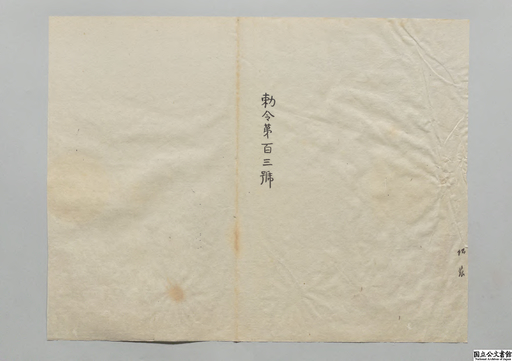 勅令第百三號
国立公文書館
National Archives of Japan